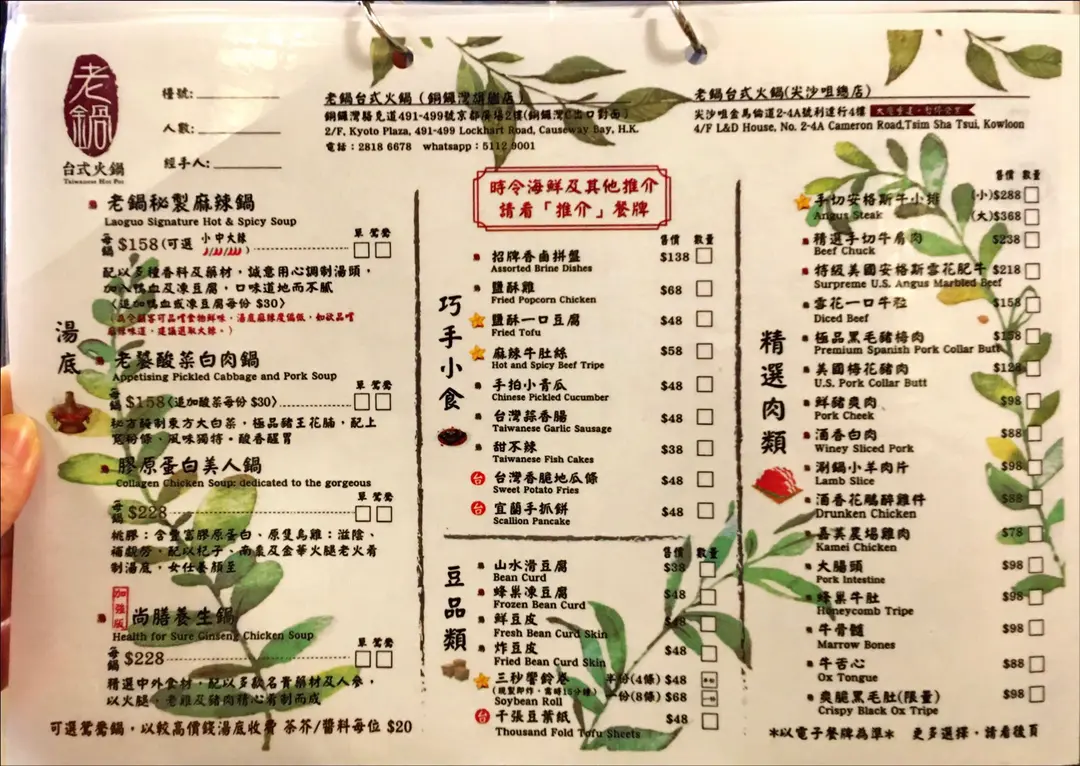 老鍋
台式火鍋
Taiwanese Hot Pot
檯號:
人數:
經手人:
老鍋台式火鍋(銅鑼灣旗艦店)
銅鑼灣駱克道491-499號京都廣場2樓(銅鑼灣C出口對面)
2/F, Kyoto Plaza, 491-499 Lockhart Road, Causeway Bay, H.K.
電話:2818 6678 whatsapp:5112 9001
老鍋台式火鍋(尖沙咀總店)
尖沙咀金馬倫道2-4A號利達行4樓
4/F L&D House, No. 2-4A Cameron Road,Tsim Sha Tsui, Kowloon
湯底
老鍋秘製麻辣鍋
Laoguo Signature Hot & Spicy Soup
單 鴛鴦
每鍋 $158(可選 小 中 大辣)
配以多種香料及藥材,誠意用心調制湯頭,
加入鴨血及凍豆腐,口味道地而不膩
〈追加鴨血或凍豆腐每份 $30〉
(為令顧客可品嚐食物鮮味,湯底麻辣度偏低,如欲品嚐
麻辣味道,建議選取大辣。)
老甕酸菜白肉鍋
Appetising Pickled Cabbage and Pork Soup
單 鴛鴦
每鍋 $158〈追加酸菜每份 $30〉
秘方醃制東方大白菜,極品豬王花腩,配上
寬粉條、風味獨特,酸香醒胃
膠原蛋白美人鍋
Collagen Chicken Soup: dedicated to the gorgeous
單 鴛鴦
每鍋 $228
桃膠:含豐富膠原蛋白、原隻烏雞:滋陰、
補顏芳、配以杞子、南棗及金華火腿老火肴
制湯底,女仕養顏至
加強版 尚膳養生鍋
Health for Sure Ginseng Chicken Soup
單 鴛鴦
每鍋 $228
精選中外食材,配以多款名貴藥材及人參,
以火腿、老雞及豬肉精心肴制而成
可選鴛鴦鍋,以較高價錢湯底收費 茶芥/醬料每位 $20
時令海鮮及其他推介
請看「推介」餐牌
巧手小食
售價 數量
招牌香鹵拼盤 $138
Assorted Brine Dishes
鹽酥雞 $68
Fried Popcorn Chicken
鹽酥一口豆腐 $48
Fried Tofu
麻辣牛肚絲 $58
Hot and Spicy Beef Tripe
手拍小青瓜 $48
Chinese Pickled Cucumber
台灣蒜香腸 $48
Taiwanese Garlic Sausage
甜不辣 $38
Taiwanese Fish Cakes
台 台灣香脆地瓜條 $48
Sweet Potato Fries
台 宜蘭手抓餅 $48
Scallion Pancake
豆品類
售價 數量
山水滑豆腐 $38
Bean Curd
蜂巢凍豆腐 $48
Frozen Bean Curd
鮮豆皮 $48
Fresh Bean Curd Skin
炸豆皮 $48
Fried Bean Curd Skin
三秒響鈴卷 半份(4條) $48
(現製即炸,需時15分鐘) 一份(8條) $68
Soybean Roll
台 千張豆葉紙 $48
Thousand Fold Tofu Sheets
精選肉類
售價 數量
手切安格斯牛小排 (小)$288
Angus Steak (大)$368
精選手切牛肩肉 $238
Beef Chuck
特級美國安格斯雪花肥牛 $218
Surpreme U.S. Angus Marbled Beef
雪花一口牛粒 $158
Diced Beef
極品黑毛豬梅肉 $158
Premium Spanish Pork Collar Butt
美國梅花豬肉 $128
U.S. Pork Collar Butt
鮮豬爽肉 $98
Pork Cheek
酒香白肉 $88
Winey Sliced Pork
涮鍋小羊肉片 $98
Lamb Slice
酒香花鵰醉雞件 $88
Drunken Chicken
嘉美農場雞肉 $78
Kamei Chicken
大腸頭 $98
Pork Intestine
蜂巢牛肚 $98
Honeycomb Tripe
牛骨髓 $98
Marrow Bones
牛舌心 $88
Ox Tongue
爽脆黑毛肚(限量) $98
Crispy Black Ox Tripe
*以電子餐牌為準* 更多選擇,請看後頁